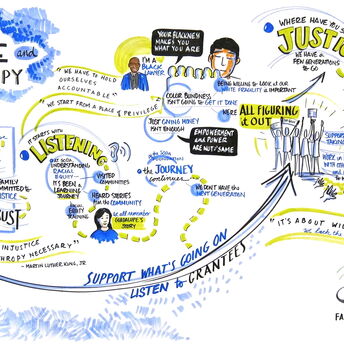 E and
OPY
"WE HAVE TO HOLD
OURSELVES
ACCOUNTABLE"
"WE START FROM A PLACE of PRIVILEGE"
I'M A
BLACK
LAWYER
YOUR BLACKNESS
MAKES YOU
WHAT YOU ARE
COLOR BLINDNESS
ISN'T GOING to GET it DONE
JUST GIVING MONEY
ISN'T ENOUGH
BEING WILLING to LOOK at OUR
WHITE FRAGILITY is IMPORTANT
WE'RE
ALL FIGURING
it OUT
EMPOWERMENT
and POWER
ARE NOT the SAME
WHERE HAVE YOU
JUSTIC
WE HAVE A
FEW GENERATIONS
to GO
SUPPORT
TAKING
WORK in
WITH
IT STARTS WITH
LISTENING
UNDERSTANDING
RACIAL
EQUITY
IT'S BEEN A
LEARNING
JOURNEY
RACIAL
EQUITY
TRAINING
VISITED
COMMUNITIES
HEARD STORIES
from the COMMUNITY
We all remember
GUADALUPE'S
STORY
the JOURNEY
continues...
WE DON'T HAVE the
NEXT GENERATION
FAMILY
COMMITTED to
JUSTICE
UST
INJUSTICE
THROPY NECESSARY"
- MARTIN LUTHER KING, JR.
SUPPORT WHAT'S GOING ON
LISTEN to GRANTEES
"IT'S ABOUT WI
FA